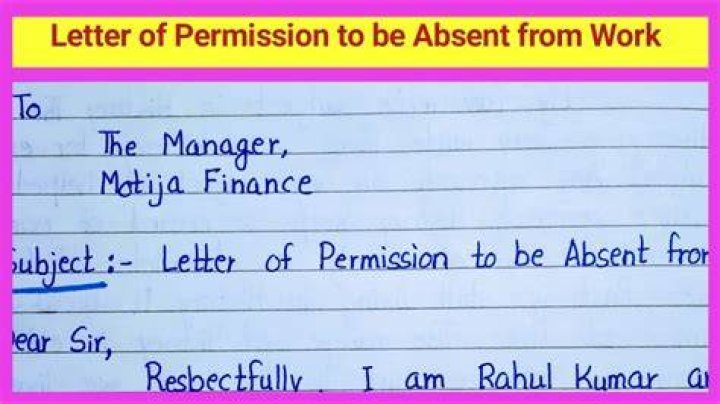 Letter of Permission to be Absent from Work
To
The Manager,
Motija Finance
Subject :- Letter of Permission to be Absent from
Dear Sir,
Resbectfully. I am Rahul Kumar